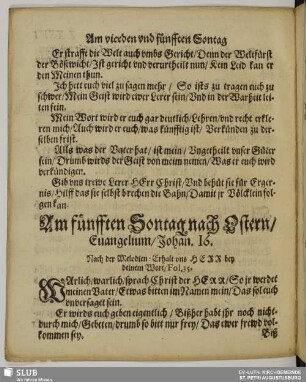 Am vierden vnd fünfften Sontag
Er strafft die Welt auch vmbs Gericht/Denn der Weltfürst
der Bösewicht/Ist gericht vnd verurtheilt nun/Kein Leid kan er
den Meinen thun.
Ich hett euch viel zu sagen mehr/So ists zu tragen euch zu
schwer/Mein Geist wird ewer Lerer sein/Vnd in der Warheit lei
ten fein.
Mein Wort wird er euch gar deutlich/Lehren/vnd recht erkle
ren mich/Auch wird er euch/was künfftig ist/Verkünden zu der
selben frist.
Alls was der Vater hat/ist mein/Vngetheilt vnser Güter
sein/Drumb wirds der Geist von meim nemen/Was er euch wird
verkündigen.
Gib vns trewe Lerer HErr Christ/Vnd behüt sie für Erger
nis/Hilff das sie selbst brechen die Bahn/Damit jr Völcklein fol
gen kan.
Am fünfften Sontag nach Ostern/
Euangelium/Johan. 16.
Nach der Melodien Erhalt vns HERR bey
deinem Wort/Fol.15.
WArlich/warlich/sprach Christ der HERR/So jr werdet
meinen Vater/Etwas bitten im Namen mein/Das sol euch
vnversaget sein.
Er wirds euch geben eigentlich/Bißher habt jhr noch nicht
durch mich/Gebeten/drumb so bitt nur frey/Das ewer frewd vol
kommen sey.
Biß
EV.-LUTH. KIRCHGEMEINDE
ST. PETRI AUGUSTUSBURG